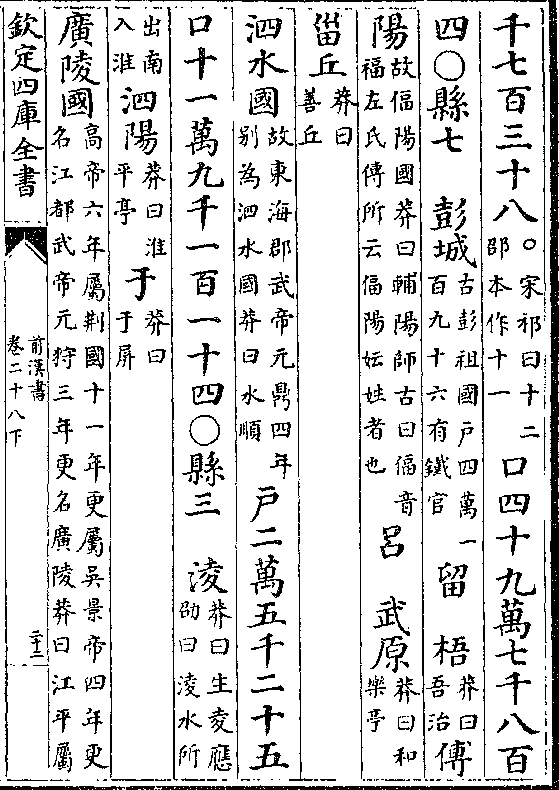 千七百三十八○宋祁曰十二邵本作十一口四十九萬七千八百
四○縣七 彭城古彭祖國戶四萬一百九十六有鐵官 留 梧莽曰吾治 傅
陽故偪陽國莽曰輔陽師古曰偪音福左氏傳所云偪陽妘姓者也 呂 武原莽曰和樂亭
甾丘莽曰善丘
泗水國故東海郡武帝元鼎四年别為泗水國莽曰水順 戶二萬五千二十五
口十一萬九千一百一十四○縣三 淩莽曰生夌應劭曰淩水所
出南入淮 泗陽莽曰淮平亭 于莽曰于屏
廣陵國高帝六年屬荆國十一年更屬吳景帝四年更名江都武帝元狩三年更名廣陵莽曰江平屬
欽定四庫全書
前漢書
卷二十八下